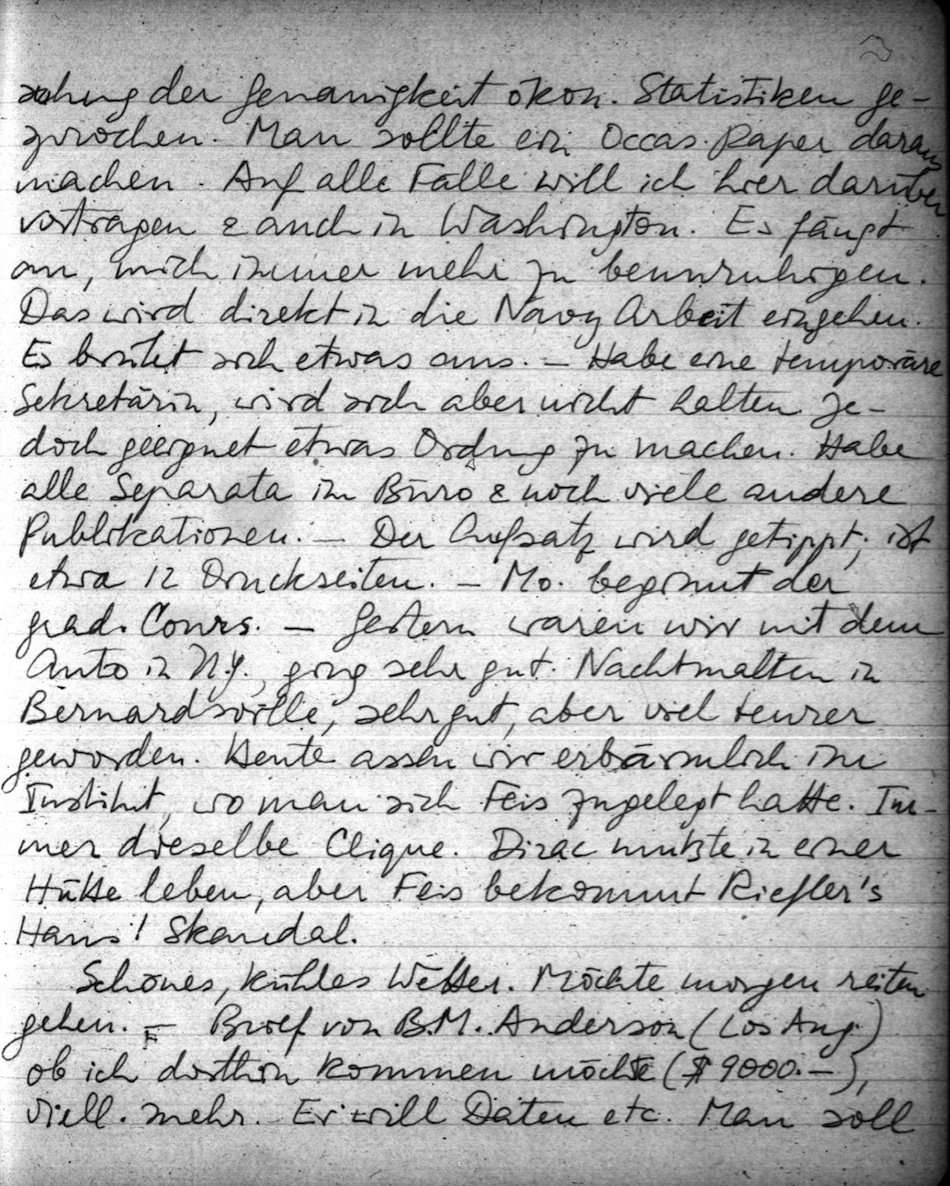 ziehung der Genauigkeit ökon. Statistiken ge-
sprochen. Man sollte ein Occas. Paper daraus
machen. Auf alle Fälle will ich hier darüber
vortragen & auch in Washington. Es fängt
an, mich immer mehr zu beunruhigen.
Das wird direkt in die Navy Arbeit eingehen.
Es brütet sich etwas aus. – Habe eine temporäre
Sekretärin, wird sich aber nicht halten. Je-
doch geeignet etwas Ordnung zu machen. Habe
alle Separata im Büro & noch viele andere
Publikationen. – Der Aufsatz wird getippt; ist
etwa 12 Druckseiten. – Mo. beginnt der
grad. Cours. – Gestern waren wir mit dem
Auto in N.Y., ging sehr gut. Nachtmalten in
Bernardsville, sehr gut, aber viel teurer
geworden. Heute assen wir erbärmlich im
Institut, wo man sich Feis zugelegt hatte. Im-
mer dieselbe Clique. Dirac musste in einer
Hütte leben, aber Feis bekommt Riefler's
Haus! Skandal.
Schönes, kühles Wetter. Möchte morgen reiten
gehen. – Brief von B.M. Anderson (Los Ang.)
ob ich dorthin kommen möchte ($ 9000.–),
viell. mehr. Er will Daten etc. Man soll